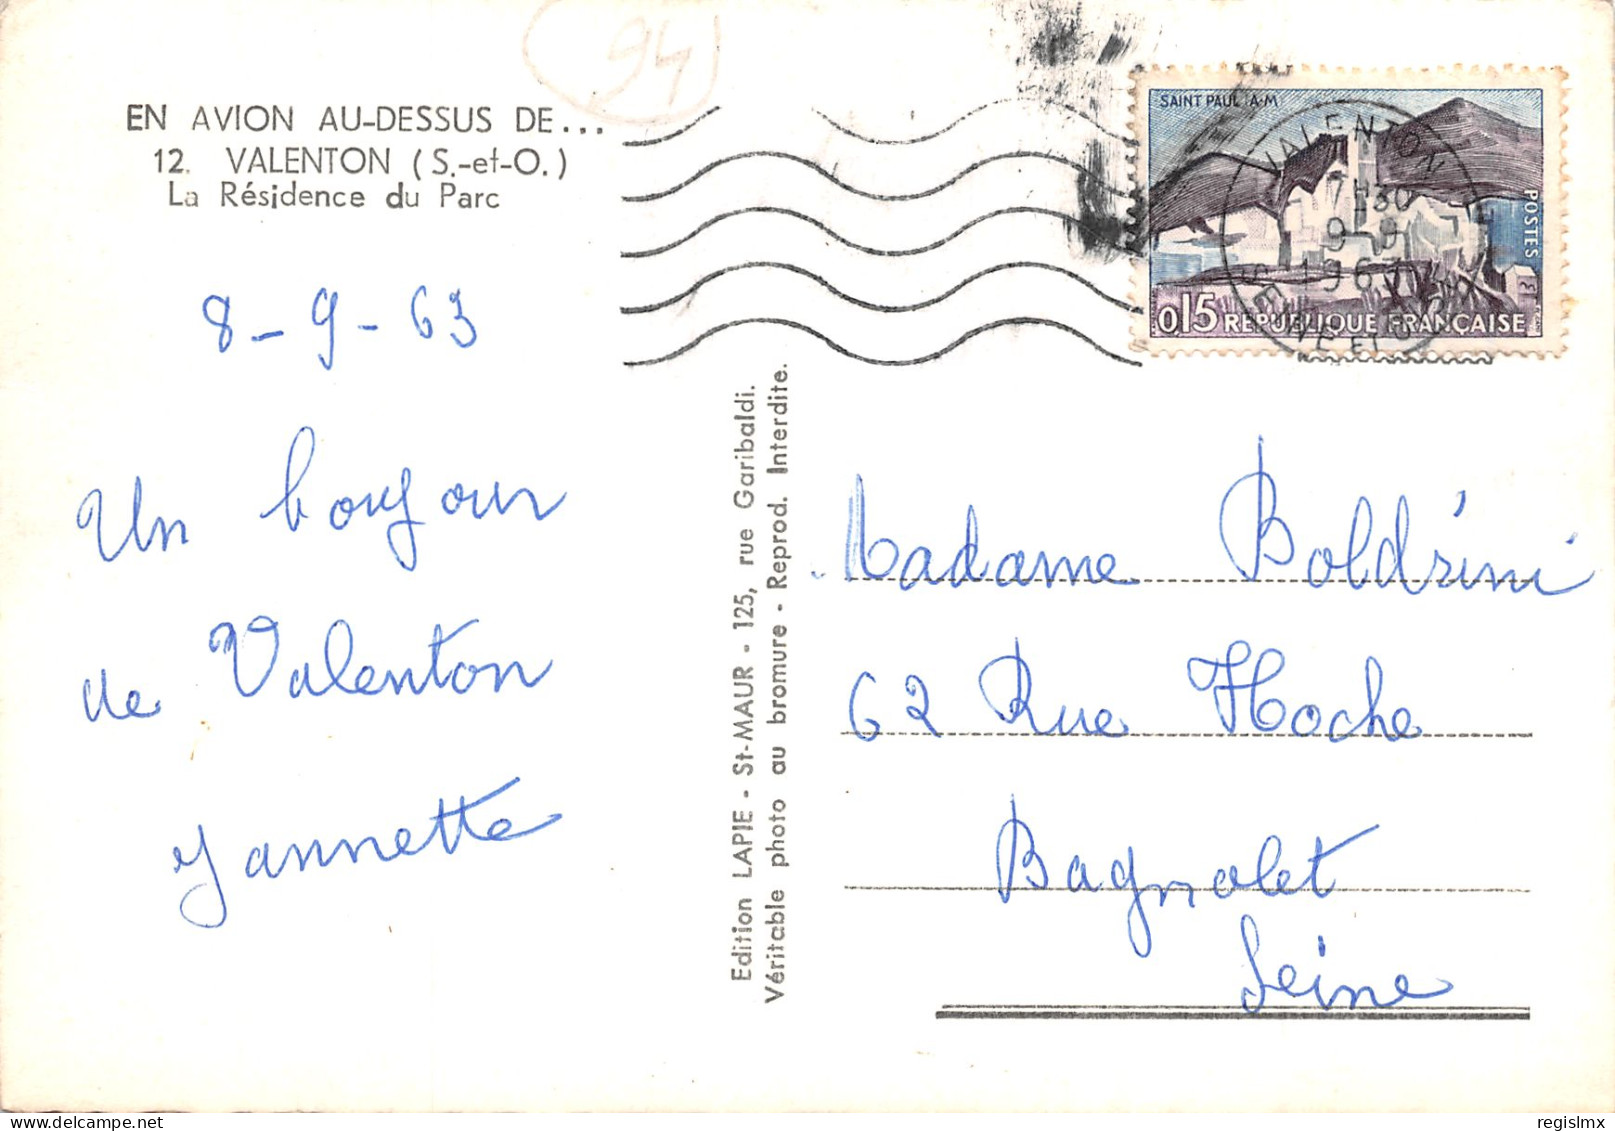 94
EN AVION AU-DESSUS DE...
12. VALENTON (S.-et-O.)
La Résidence du Parc
8-9-63
Un bonjour
de Valenton
Jannette
Edition LAPIE - St-MAUR - 125, rue Garibaldi.
Véritable photo au bromure - Reprod. Interdite.
SAINT PAUL A-M
POSTES
0,15 RÉPUBLIQUE FRANÇAISE
VALENTON
7H30
9-9
SEINE ET OISE
Madame Boldrini
62 Rue Hoche
Bagnolet
Seine
regislmx